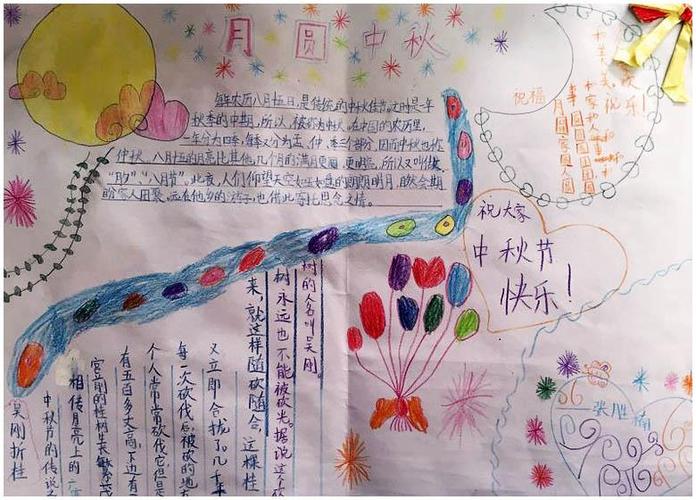 月圆中秋
每农历八月十五日,是传统的中秋佳节。这时是一年
秋季的中期,所以,被称为中秋。在中国的农历里,
一年分为四季,每季又分为孟、仲、季三个部分,因而中秋也称
仲秋。八月十五的月亮比其他几个月的满月更圆,更明亮,所以又叫做
“月夕”“八月节”。此夜,人们仰望天空如玉如盘的朗朗明月,自然会期
盼家人团聚。远在他乡的游子,也借此寄托思念之情。
祝福
快乐!
祝大家
中秋节
快乐!
树的人名叫吴刚。
树永远也不能被砍光。据说这个砍
来,就这样随砍随合,这棵桂
又立即合拢了。几千年
每一次砍伐后,被砍的地方
个人常常砍伐它,但是
有五百多丈高,下边有一
宫前的桂树生长繁茂
相传月亮上的
中秋节的传说之
吴刚折桂
张胜楠